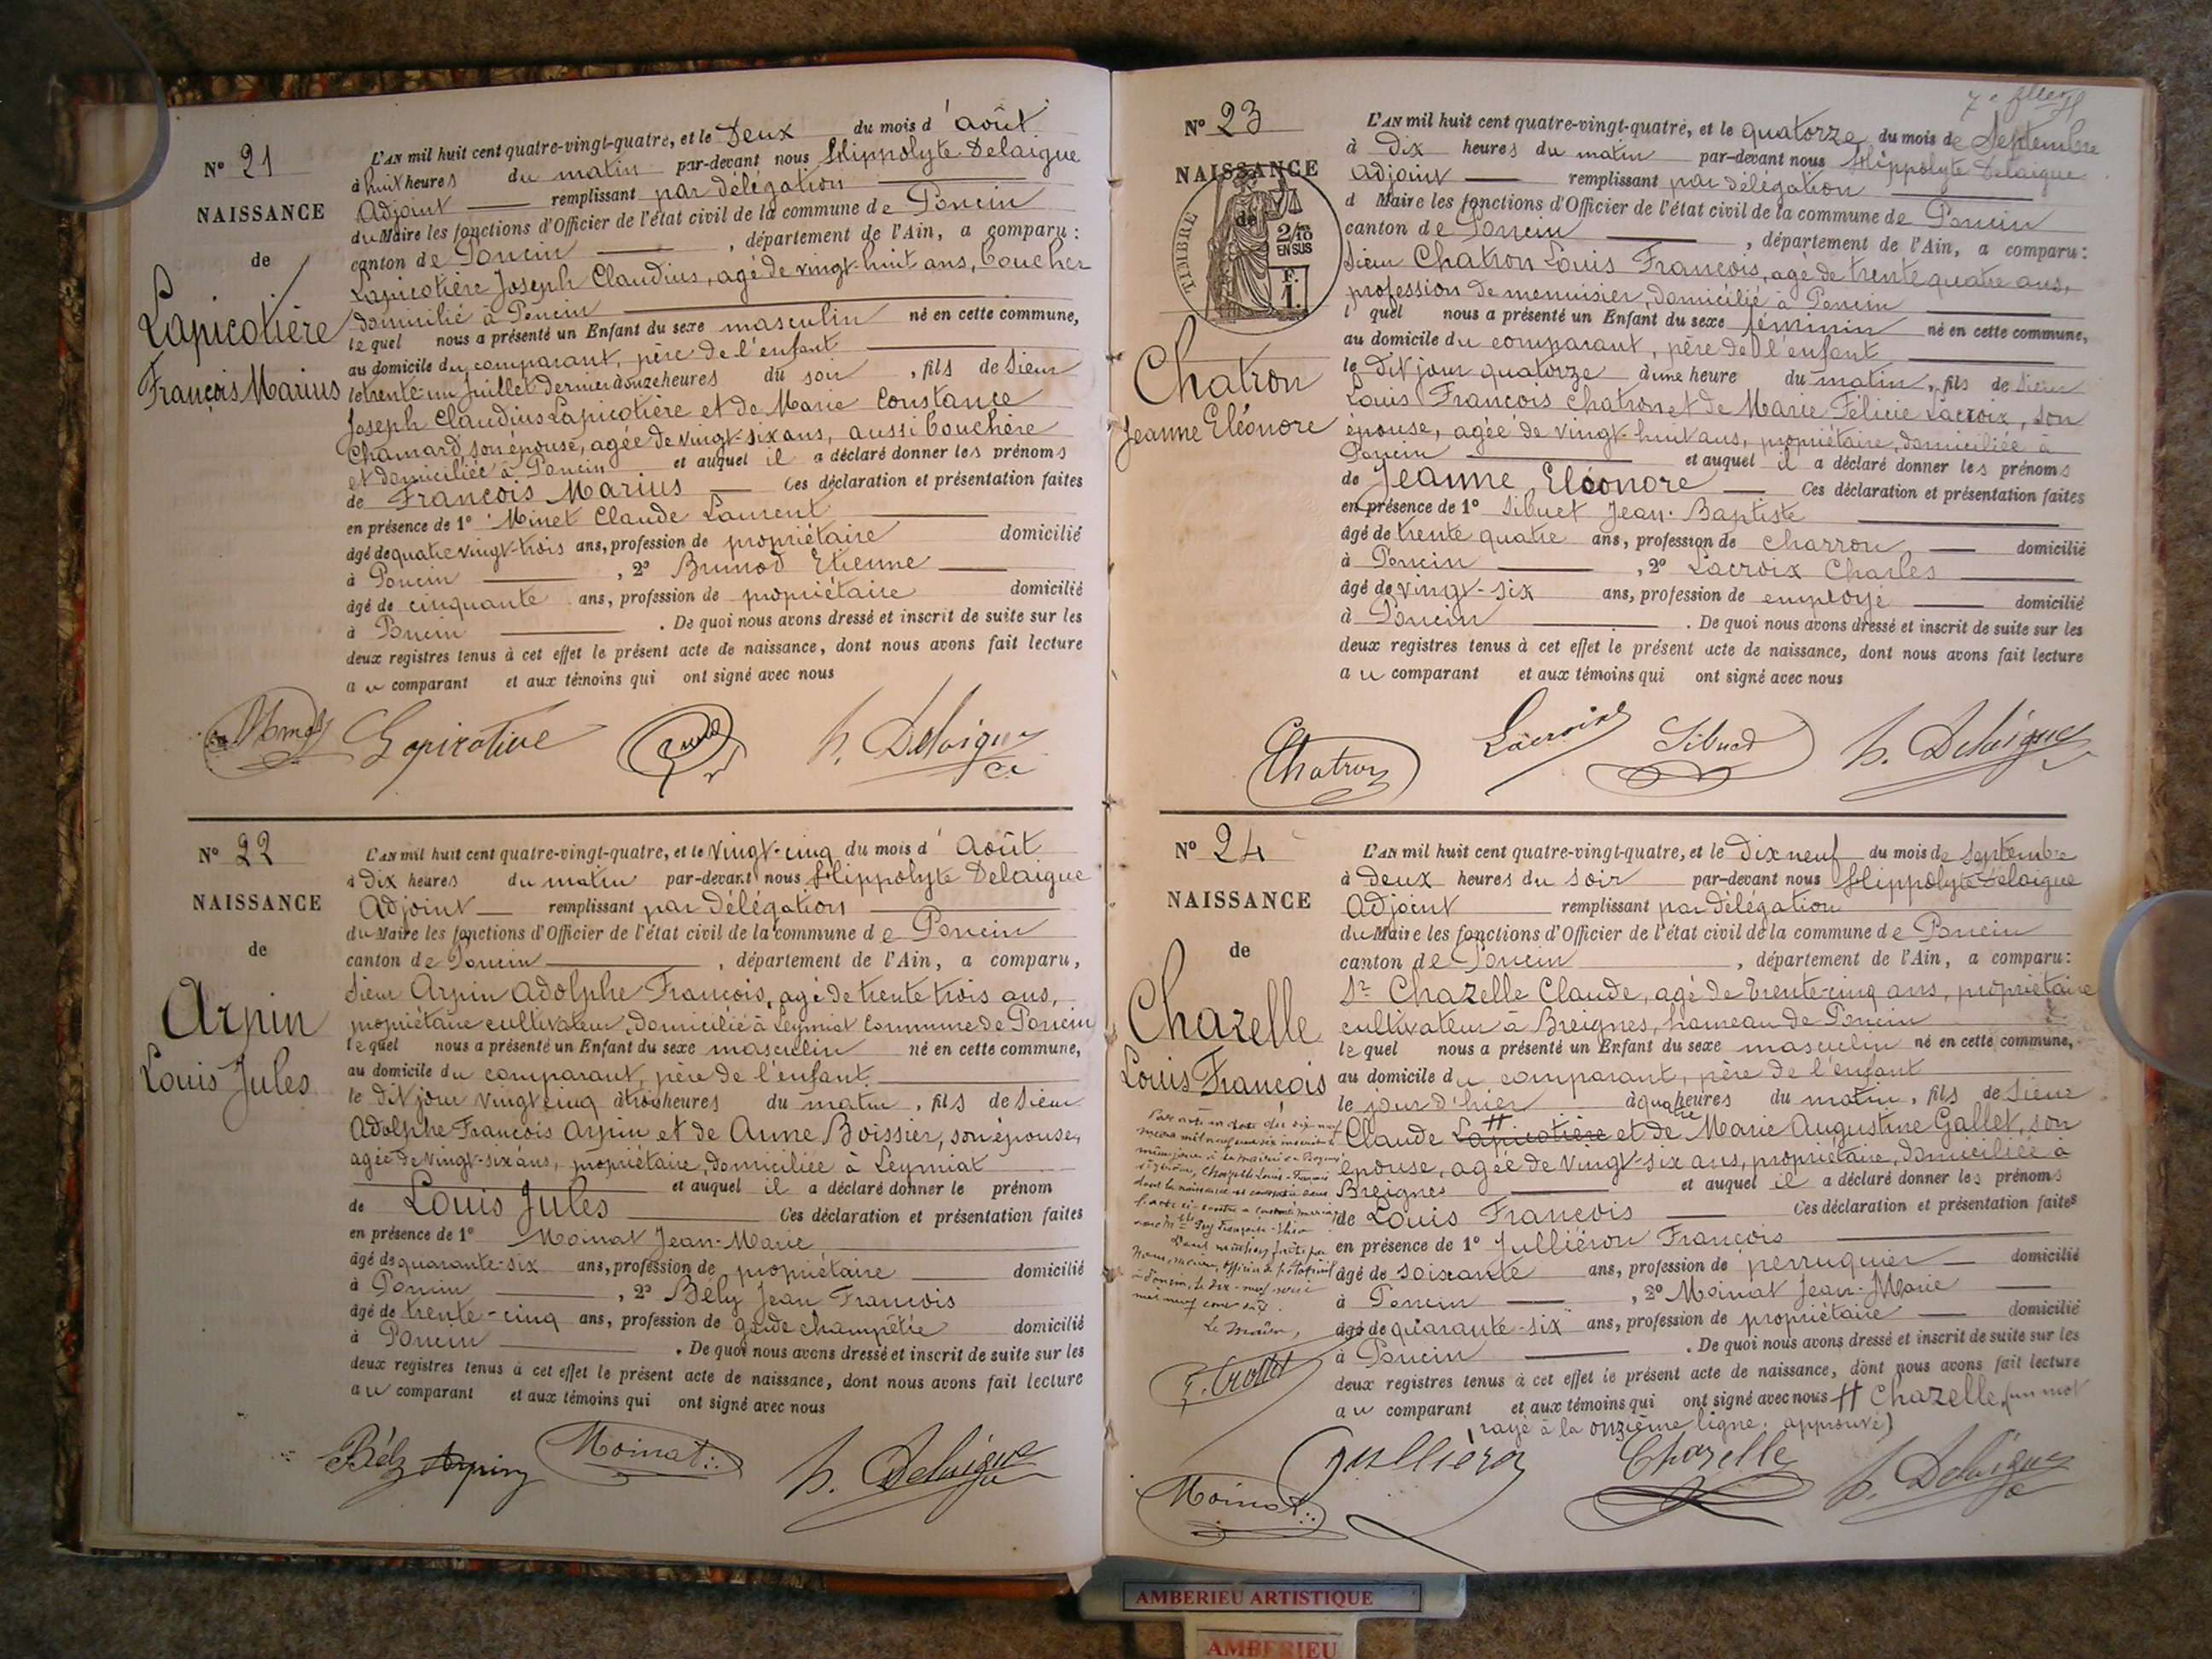 N° 21
NAISSANCE
de
Lapicotière
François Marius
L'AN mil huit cent quatre-vingt-quatre, et le Deux du mois d'août
à huit heures du matin par-devant nous Hippolyte Delaigue
Adjoint remplissant par délégation
du Maire les fonctions d'Officier de l'état civil de la commune de Poncin
canton de Poncin, département de l'Ain, a comparu:
Lapicotière Joseph Claudius, agé de vingt-huit ans, boucher
domicilié à Poncin
lequel nous a présenté un Enfant du sexe masculin né en cette commune,
au domicile du comparant, père de l'enfant
le trente-un Juillet dernier à onze heures du soir, fils de Sieur
Joseph Claudius Lapicotière et de Marie Constance
Chamard, son épouse, agée de vingt-six ans, aussi bouchère
et domiciliée à Poncin et auquel il a déclaré donner les prénoms
de François Marius Ces déclaration et présentation faites
en présence de 1° Minet Claude Laurent
âgé de quatre vingt-trois ans, profession de propriétaire domicilié
à Poncin, 2° Brunod Etienne
âgé de cinquante ans, profession de propriétaire domicilié
à Poncin. De quoi nous avons dressé et inscrit de suite sur les
deux registres tenus à cet effet le présent acte de naissance, dont nous avons fait lecture
au comparant et aux témoins qui ont signé avec nous
Lapicotière h. Delaigue
N° 22
NAISSANCE
de
Arpin
Louis Jules
L'AN mil huit cent quatre-vingt-quatre, et le vingt-cinq du mois d'Août
à Dix heures du matin par-devant nous Hippolyte Delaigue
Adjoint remplissant par délégation
du Maire les fonctions d'Officier de l'état civil de la commune de Poncin
canton de Poncin, département de l'Ain, a comparu,
Sieur Arpin Adolphe François, agé de trente trois ans,
propriétaire cultivateur, domicilié à Leymiat commune de Poncin
lequel nous a présenté un Enfant du sexe masculin né en cette commune,
au domicile du comparant, père de l'enfant
le dit jour vingt cinq à trois heures du matin, fils de Sieur
Adolphe François Arpin et de Anne Boissier, son épouse,
agée de vingt-six ans, propriétaire, domiciliée à Leymiat
et auquel il a déclaré donner le prénom
de Louis Jules Ces déclaration et présentation faites
en présence de 1° Moinat Jean-Marie
âgé de quarante-six ans, profession de propriétaire domicilié
à Poncin, 2° Bély Jean François
âgé de trente-cinq ans, profession de garde champêtre domicilié
à Poncin. De quoi nous avons dressé et inscrit de suite sur les
deux registres tenus à cet effet le présent acte de naissance, dont nous avons fait lecture
au comparant et aux témoins qui ont signé avec nous
Bély Arpin Moinat h. Delaigue
N° 23
NAISSANCE
de
TIMBRE
2/10
EN SUS
F.
1.
Chatron
Jeanne Eléonore
L'AN mil huit cent quatre-vingt-quatre, et le quatorze du mois de Septembre
à Dix heures du matin par-devant nous Hippolyte Delaigue
Adjoint remplissant par délégation
d Maire les fonctions d'Officier de l'état civil de la commune de Poncin
canton de Poncin, département de l'Ain, a comparu:
Sieur Chatron Louis François, agé de trente quatre ans,
profession de menuisier, domicilié à Poncin
l quel nous a présenté un Enfant du sexe féminin né en cette commune,
au domicile du comparant, père de l'enfant
le Dit jour quatorze d'une heure du matin, fils de Sieur
Louis François Chatron et de Marie Félicie Lacroix, son
épouse, agée de vingt-huit ans, propriétaire, domiciliée à
Poncin et auquel il a déclaré donner les prénoms
de Jeanne Eléonore Ces déclaration et présentation faites
en présence de 1° Sibuet Jean-Baptiste
âgé de trente quatre ans, profession de charron domicilié
à Poncin, 2° Lacroix Charles
âgé de vingt-six ans, profession de employé domicilié
à Poncin. De quoi nous avons dressé et inscrit de suite sur les
deux registres tenus à cet effet le présent acte de naissance, dont nous avons fait lecture
au comparant et aux témoins qui ont signé avec nous
Chatron Lacroix Sibuet h. Delaigue
N° 24
NAISSANCE
de
Chazelle
Louis François
L'AN mil huit cent quatre-vingt-quatre, et le Dix neuf du mois de Septembre
à Deux heures du soir par-devant nous Hippolyte Delaigue
Adjoint remplissant par délégation
du Maire les fonctions d'Officier de l'état civil de la commune de Poncin
canton de Poncin, département de l'Ain, a comparu:
Sr Chazelle Claude, agé de trente-cinq ans, propriétaire
cultivateur à Breignes, hameau de Poncin
lequel nous a présenté un Enfant du sexe masculin né en cette commune,
au domicile du comparant, père de l'enfant
le jour d'hier à quatre heures du matin, fils de Sieur
Claude Lapicotière et de Marie Augustine Gallet, son
épouse, agée de vingt-six ans, propriétaire, domiciliée à
Breignes et auquel il a déclaré donner les prénoms
de Louis François Ces déclaration et présentation faites
en présence de 1° Julliéron François
âgé de soixante ans, profession de perruquier domicilié
à Poncin, 2° Moinat Jean-Marie
âgé de quarante-six ans, profession de propriétaire domicilié
à Poncin. De quoi nous avons dressé et inscrit de suite sur les
deux registres tenus à cet effet le présent acte de naissance, dont nous avons fait lecture
au comparant et aux témoins qui ont signé avec nous # Chazelle (un mot
rayé à la onzième ligne. approuvé)
Le Maire,
Moinat Jullieron Chazelle h. Delaigue
AMBERIEU ARTISTIQUE
AMBERIEU